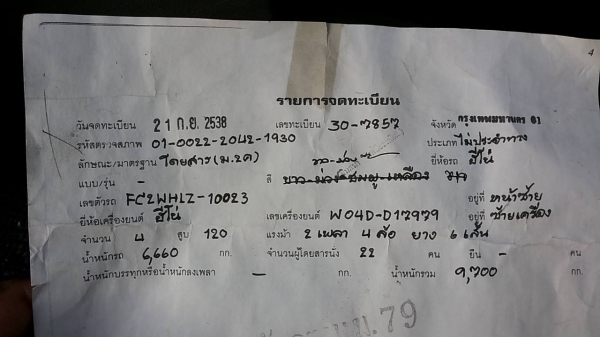 4
รายการจดทะเบียน
วันจดทะเบียน 21 ก.ย. 2538 เลขทะเบียน 30-7857 จังหวัด กรุงเทพมหานคร 01
รหัสตรวจสภาพ 01-0022-2042-1930 ประเภท ไม่ประจำทาง
ลักษณะ/มาตรฐาน โดยสาร (ม.2ค) ยี่ห้อรถ ฮีโน่
แบบ/รุ่น - สี ขาว-ม่วง-ชมพู-เหลือง
เลขตัวรถ FC2WHLZ-10023 อยู่ที่ หน้าซ้าย
ยี่ห้อเครื่องยนต์ ฮีโน่ เลขเครื่องยนต์ W04D-D17979 อยู่ที่ ซ้ายเครื่อง
จำนวน 4 สูบ 120 แรงม้า 2 เพลา 4 ล้อ ยาง 6 เส้น
น้ำหนักรถ 6,660 กก. จำนวนผู้โดยสารนั่ง 22 คน ยืน - คน
น้ำหนักบรรทุกหรือน้ำหนักลงเพลา - กก. น้ำหนักรวม 9,700 กก.
79